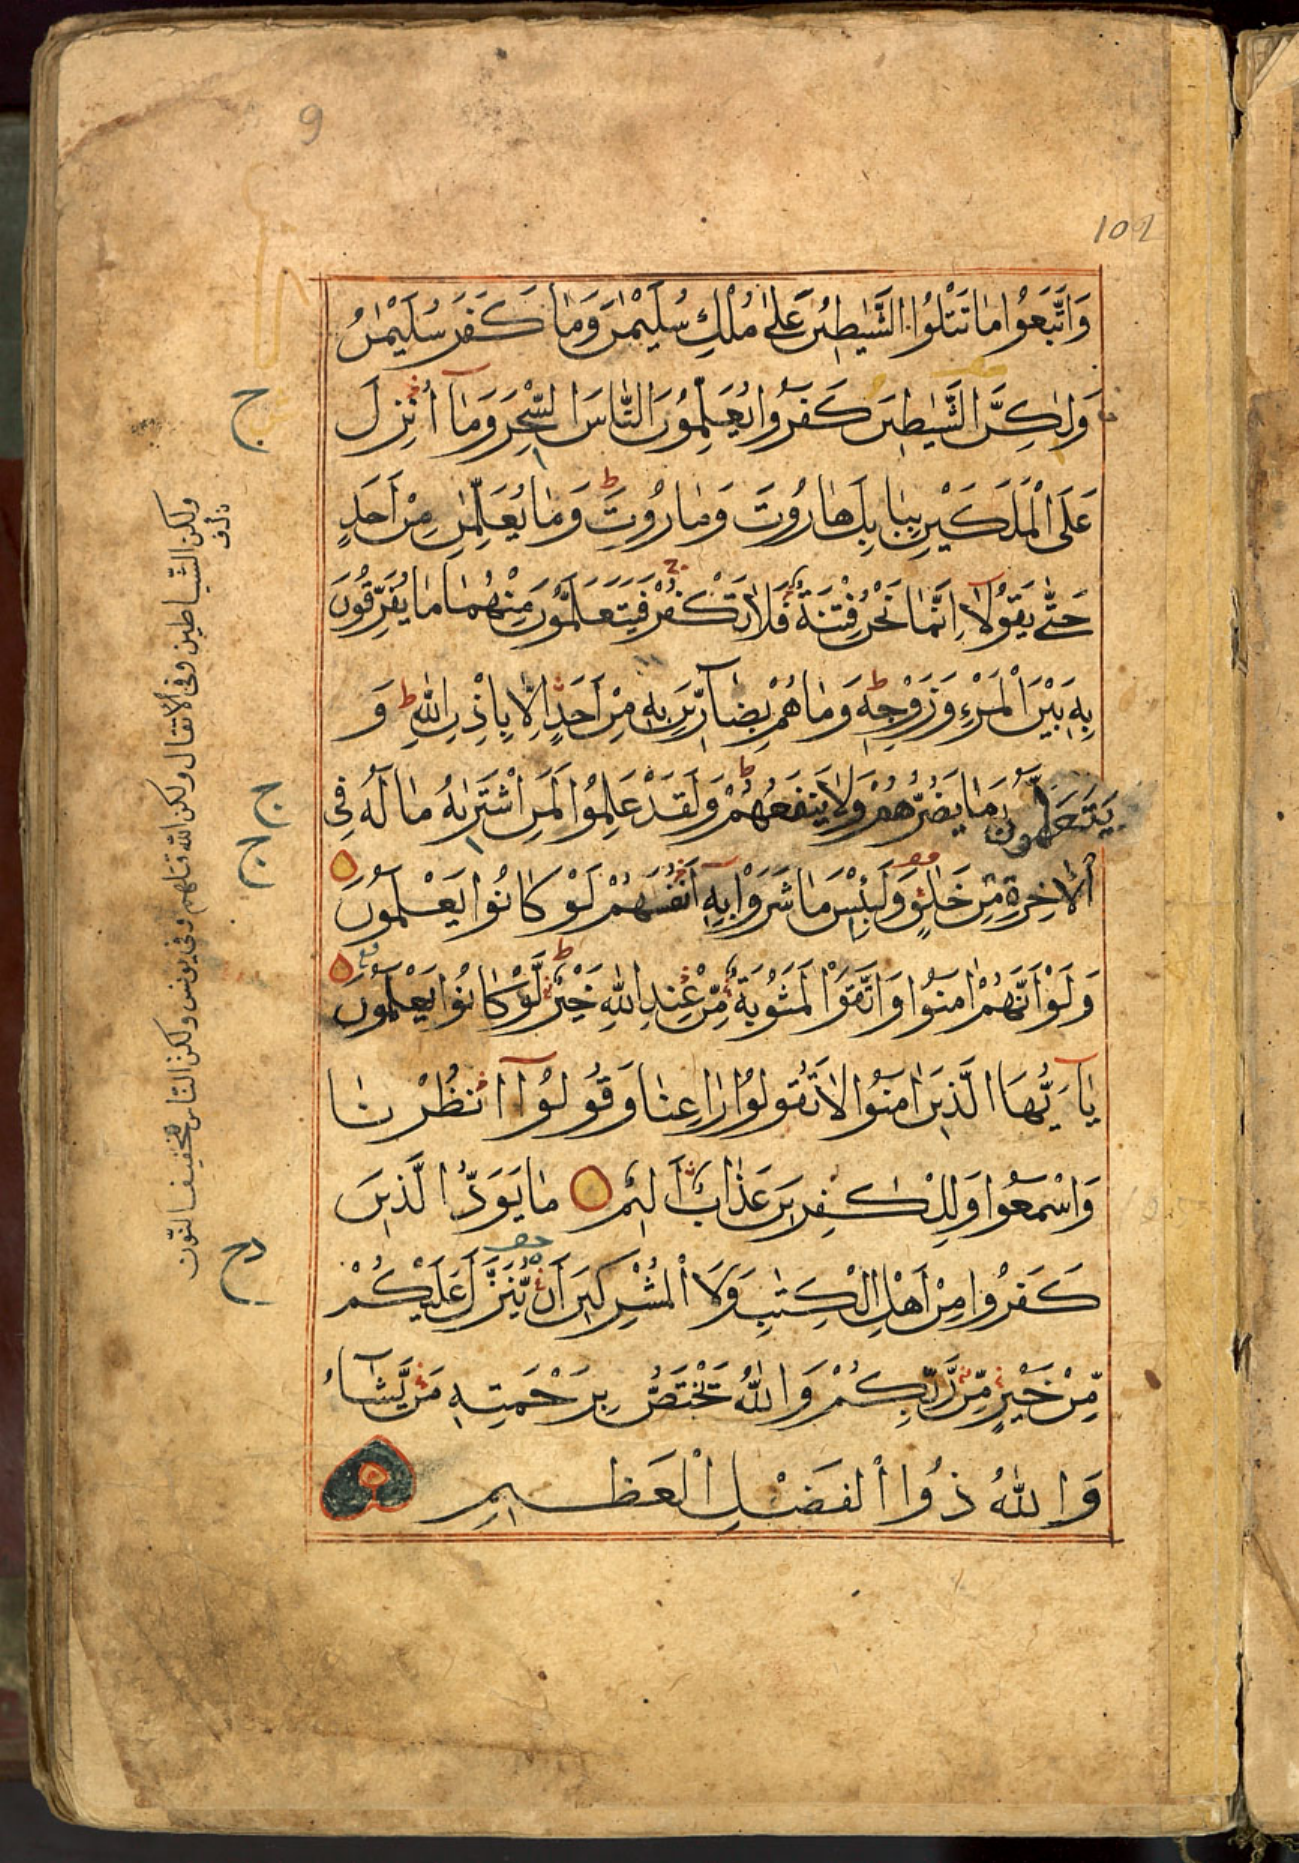 9
102
وَاتَّبَعُوا مَا تَتْلُوا الشَّيٰطِينُ عَلىٰ مُلْكِ سُلَيْمٰنَ وَمَا كَفَرَ سُلَيْمٰنُ
وَلٰكِنَّ الشَّيٰطِينَ كَفَرُوا يُعَلِّمُونَ النَّاسَ السِّحْرَ وَمَآ اُنْزِلَ
عَلَى الْمَلَكَيْنِ بِبَابِلَ هَارُوتَ وَمَارُوتَ ط وَمَا يُعَلِّمٰنِ مِنْ اَحَدٍ
حَتّٰى يَقُولَآ اِنَّمَا نَحْنُ فِتْنَةٌ فَلَا تَكْفُرْ فَيَتَعَلَّمُونَ مِنْهُمَا مَا يُفَرِّقُونَ
بِهٖ بَيْنَ الْمَرْءِ وَزَوْجِهٖ ط وَمَا هُمْ بِضَآرِّينَ بِهٖ مِنْ اَحَدٍ اِلَّا بِاِذْنِ اللّٰهِ ط وَ
يَتَعَلَّمُونَ مَا يَضُرُّهُمْ وَلَا يَنْفَعُهُمْ ط وَلَقَدْ عَلِمُوا لَمَنِ اشْتَرٰىهُ مَا لَهُ فِى
الْاٰخِرَةِ مِنْ خَلَاقٍ وَلَبِئْسَ مَا شَرَوْا بِهٖٓ اَنْفُسَهُمْ لَوْ كَانُوا يَعْلَمُونَ
وَلَوْ اَنَّهُمْ اٰمَنُوا وَاتَّقَوْا لَمَثُوبَةٌ مِّنْ عِنْدِ اللّٰهِ خَيْرٌ ط لَّوْ كَانُوا يَعْلَمُونَ
يَآ اَيُّهَا الَّذِينَ اٰمَنُوا لَا تَقُولُوا رَاعِنَا وَقُولُوا انْظُرْنَا
وَاسْمَعُوا وَلِلْكٰفِرِينَ عَذَابٌ اَلِيمٌ مَا يَوَدُّ الَّذِينَ
كَفَرُوا مِنْ اَهْلِ الْكِتٰبِ وَلَا الْمُشْرِكِينَ اَنْ يُّنَزَّلَ عَلَيْكُمْ
مِّنْ خَيْرٍ مِّنْ رَّبِّكُمْ وَاللّٰهُ يَخْتَصُّ بِرَحْمَتِهٖ مَنْ يَّشَآءُ
وَاللّٰهُ ذُوا الْفَضْلِ الْعَظِيمِ
ج
ج
ج
دح
ولكن الشياطين وفى الانفال ولكن الله قتلهم وفى يونس ولكن الناس بتخفيف النون